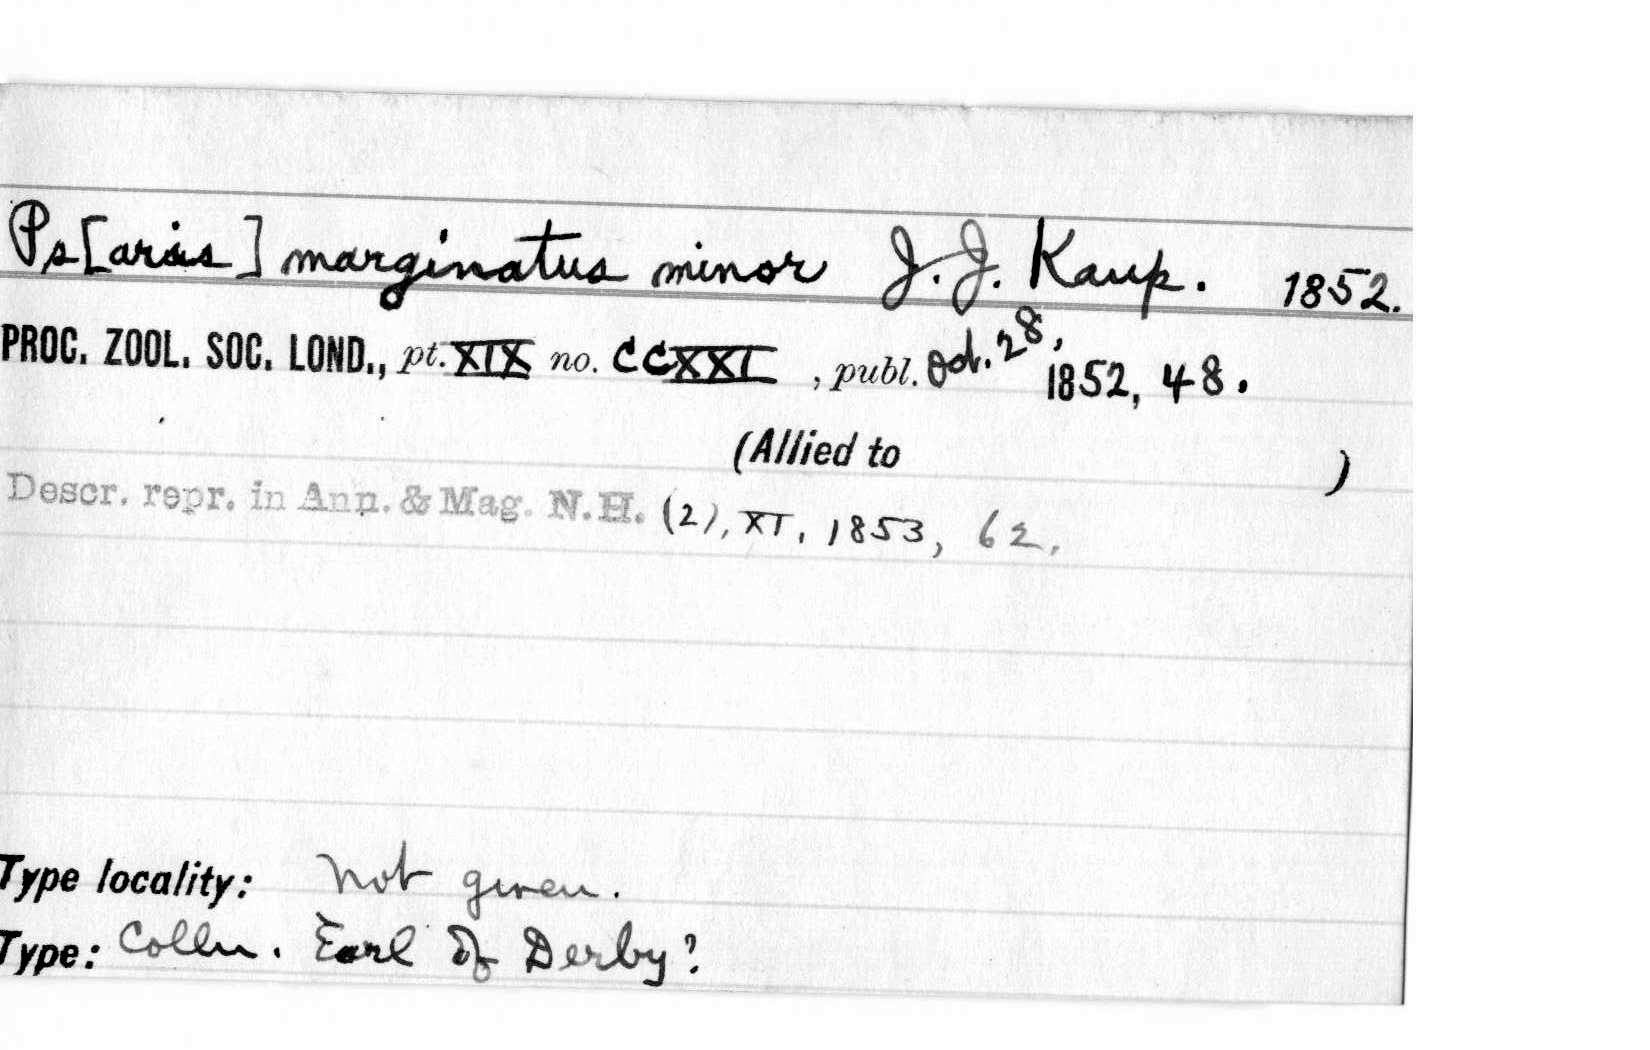 Ps[aris] marginatus minor J. J. Kaup. 1852.
PROC. ZOOL. SOC. LOND., pt. XIX no. CCXXI, publ. Oct. 28, 1852, 48.
(Allied to )
Descr. repr. in Ann. & Mag. N.H. (2), XI, 1853, 62.
Type locality: not given.
Type: Colln. Earl of Derby?